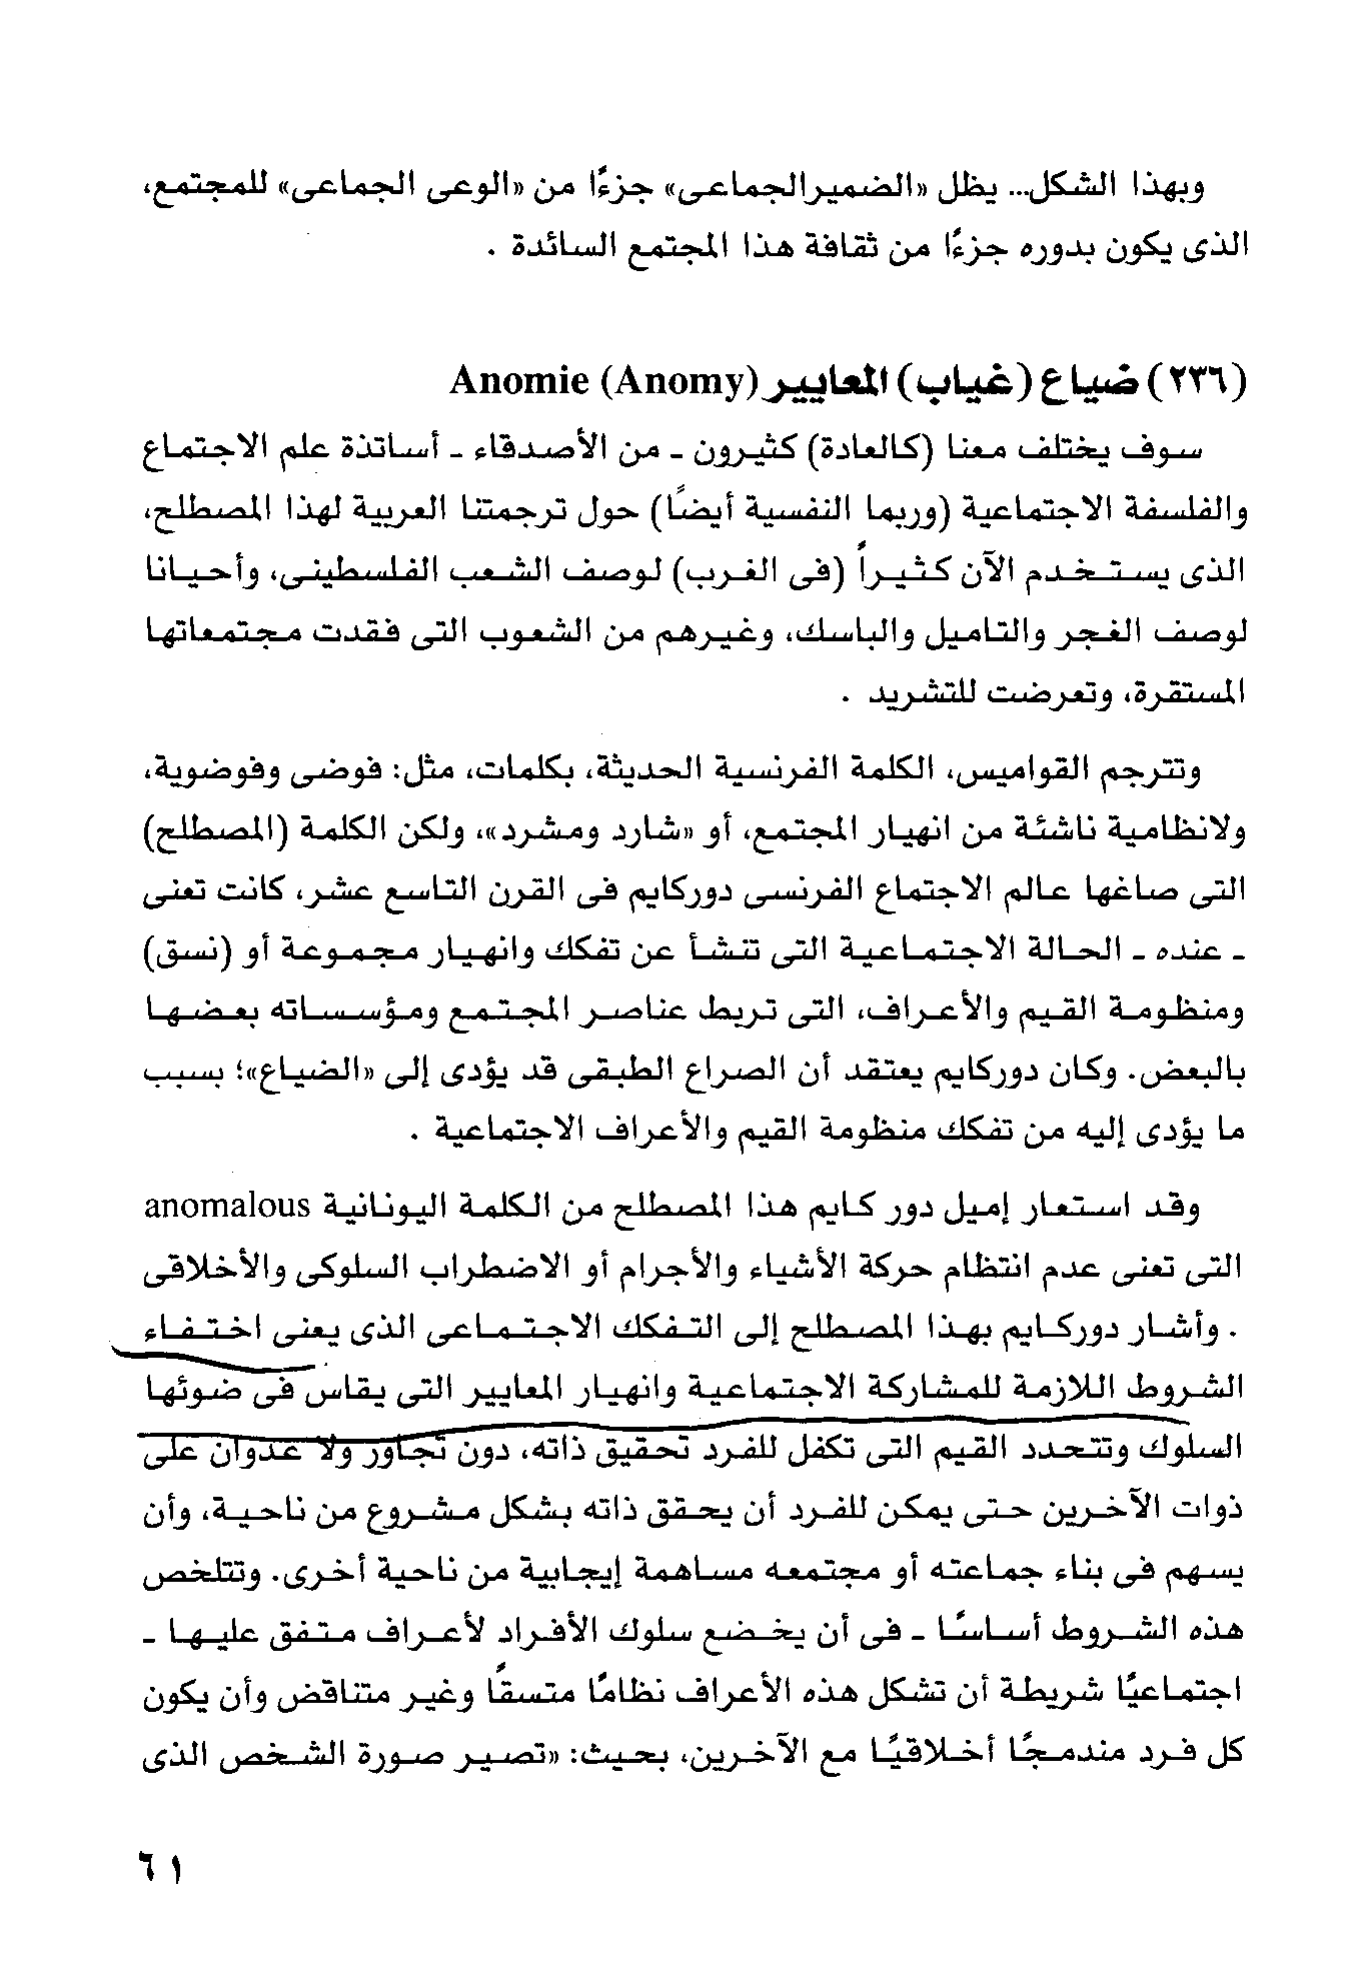 وبهذا الشكل... يظل «الضميرالجماعى» جزءًا من «الوعى الجماعى» للمجتمع،
الذى يكون بدوره جزءًا من ثقافة هذا المجتمع السائدة .
(٢٣٦) ضياع (غياب) المعايير Anomie (Anomy)
سوف يختلف معنا (كالعادة) كثيرون ـ من الأصدقاء ـ أساتذة علم الاجتماع
والفلسفة الاجتماعية (وربما النفسية أيضًا) حول ترجمتنا العربية لهذا المصطلح،
الذى يستخدم الآن كثيراً (فى الغرب) لوصف الشعب الفلسطينى، وأحيانا
لوصف الغجر والتاميل والباسك، وغيرهم من الشعوب التى فقدت مجتمعاتها
المستقرة، وتعرضت للتشريد .
وتترجم القواميس، الكلمة الفرنسية الحديثة، بكلمات، مثل: فوضى وفوضوية،
ولانظامية ناشئة من انهيار المجتمع، أو «شارد ومشرد»، ولكن الكلمة (المصطلح)
التى صاغها عالم الاجتماع الفرنسى دوركايم فى القرن التاسع عشر، كانت تعنى
ـ عنده ـ الحالة الاجتماعية التى تنشأ عن تفكك وانهيار مجموعة أو (نسق)
ومنظومة القيم والأعراف، التى تربط عناصر المجتمع ومؤسساته بعضها
بالبعض. وكان دوركايم يعتقد أن الصراع الطبقى قد يؤدى إلى «الضياع»؛ بسبب
ما يؤدى إليه من تفكك منظومة القيم والأعراف الاجتماعية .
وقد استعار إميل دور كايم هذا المصطلح من الكلمة اليونانية anomalous
التى تعنى عدم انتظام حركة الأشياء والأجرام أو الاضطراب السلوكى والأخلاقى
. وأشار دوركايم بهذا المصطلح إلى التفكك الاجتماعى الذى يعنى اختفاء
الشروط اللازمة للمشاركة الاجتماعية وانهيار المعايير التى يقاس فى ضوئها
السلوك وتتحدد القيم التى تكفل للفرد تحقيق ذاته، دون تجاور ولا عدوان على
ذوات الآخرين حتى يمكن للفرد أن يحقق ذاته بشكل مشروع من ناحية، وأن
يسهم فى بناء جماعته أو مجتمعه مساهمة إيجابية من ناحية أخرى. وتتلخص
هذه الشروط أساسًا ـ فى أن يخضع سلوك الأفراد لأعراف متفق عليها ـ
اجتماعيًا شريطة أن تشكل هذه الأعراف نظامًا متسقًا وغير متناقض وأن يكون
كل فرد مندمجًا أخلاقيًا مع الآخرين، بحيث: «تصير صورة الشخص الذى
٦١